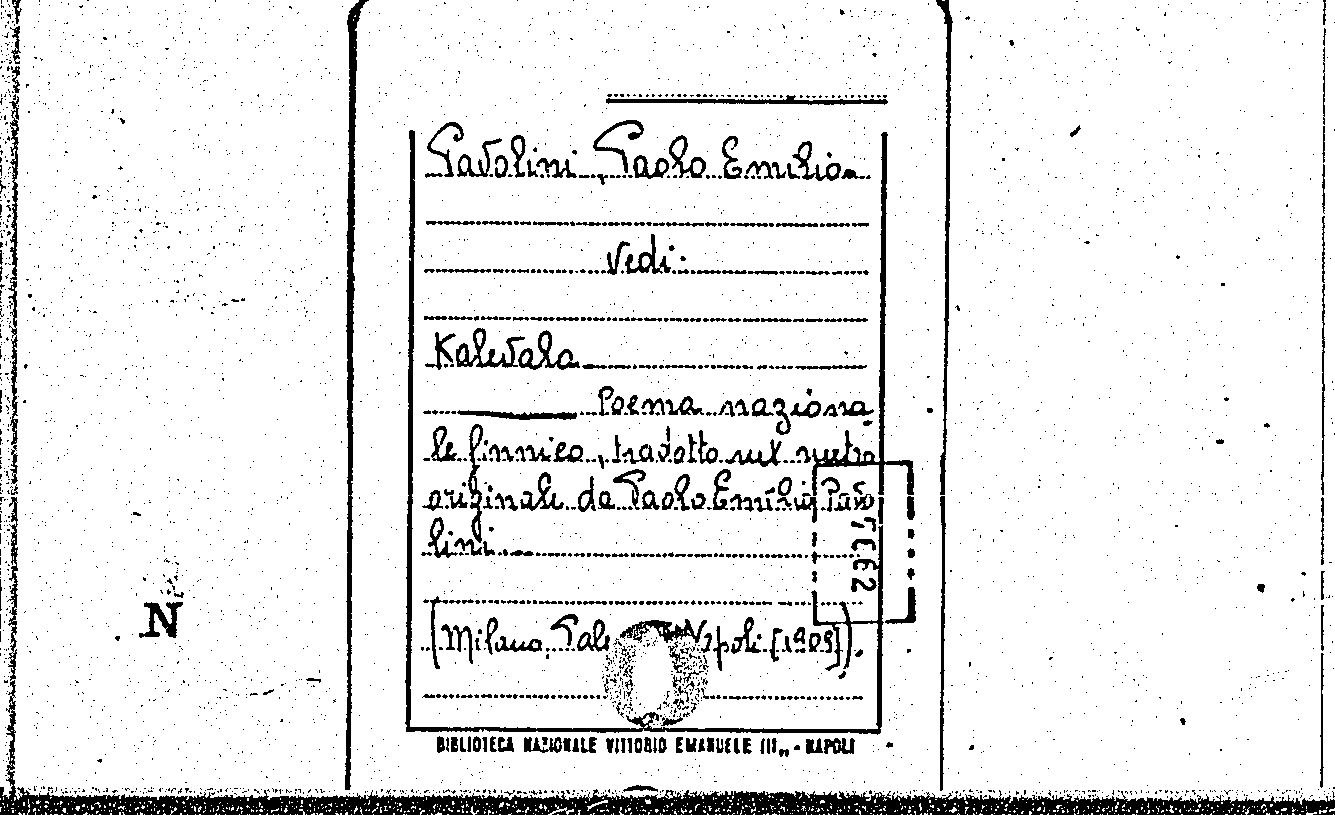 Pavolini, Paolo Emilio
Vedi:
Kalevala
Poema naziona
le finnico, tradotto nel metro
originale da Paolo Emilio Pavo
lini.
(Milano, Napoli [1909]).
N
BIBLIOTECA NAZIONALE VITTORIO EMANUELE III„ - NAPOLI